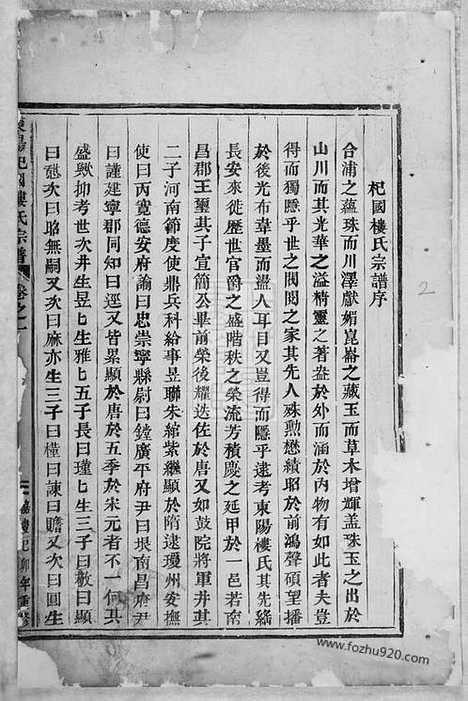 杞國樓氏宗譜序
合浦之蘊珠而川澤獻媚崑崙之藏玉而草木增輝蓋珠玉之出於
山川而其光華之溢精靈之著盎於外而涵於內物有如此者夫豈
得而獨隱乎世之閥閱之家其先人殊勲懋績昭於前鴻聲碩望播
於後光布韋墨而盪人耳目又豈得而隱乎遠考東陽樓氏其先繇
長安來徙歷世官爵之盛階秩之榮流芳積慶之延甲於一邑若南
昌郡王璽其子宣簡公畢前榮後耀迭佐於唐又如鼓院將軍井其
二子河南節度使鼎兵科給事昱聯朱綰紫繼顯於隋逮瓊州安撫
使曰丙寬德安府諭曰忠崇寧縣尉曰鏜廣平府尹曰垠南昌府尹
曰謹建寧郡同知曰逕又皆累顯於唐於五季於宋元者不一何其
盛歟抑考世次井生昱匕生雅匕五子長曰瓘匕生三子曰敷曰顯
曰愻次曰昭無嗣又次曰麻亦生三子曰槿曰諫曰贍又次曰圓生
東陽杞國樓氏宗譜 卷之一
2
www.fozhu920.com